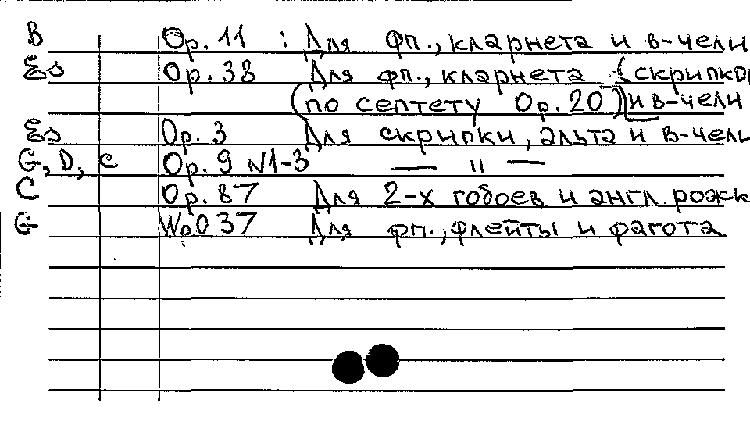 B Op. 11 : Для фп., кларнета и в-чели
Es Op. 38 Для фп., кларнета (скрипки
(по септету Op. 20) и в-чели
Es Op. 3 Для скрипки, альта и в-чели
G, D, c Op. 9 N1-3 — " —
C Op. 87 Для 2-х гобоев и англ. рожк
G WoO37 Для фп., флейты и фагота